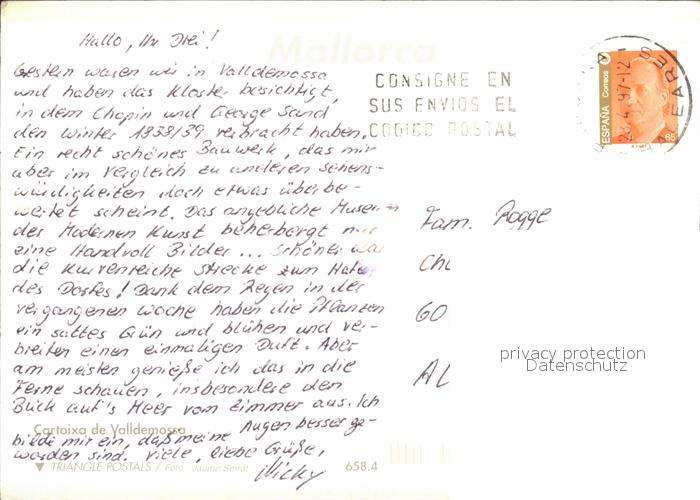 Mallorca
Hallo, Ihr Drei!
Gestern waren wir in Valldemossa
und haben das Kloster besichtigt,
in dem Chopin und George Sand
den Winter 1838/39 verbracht haben.
Ein recht schönes Bauwerk, das mir
aber im Vergleich zu anderen Sehens-
würdigkeiten doch etwas überbe-
wertet scheint. Das angebliche Museum
der Modernen Kunst beherbergt nur
eine Handvoll Bilder... Schöner war
die kurvenreiche Strecke zum Hafen
des Dorfes! Dank dem Regen in der
vergangenen Woche haben die Pflanzen
ein sattes Grün und blühen und ver-
breiten einen einmaligen Duft. Aber
am meisten genieße ich das in die
Ferne schauen, insbesondere den
Blick auf's Meer vom Zimmer aus. Ich
bilde mir ein, daß meine Augen besser ge-
worden sind. Viele, liebe Grüße,
Nicky
Cartoixa de Valldemossa
TRIANGLE POSTALS / Foto: Jaume Serrat
658.4
CONSIGNE EN
SUS ENVIOS EL
CODIGO POSTAL
ESPAÑA Correos
65
Fam. Rogge
privacy protection
Datenschutz